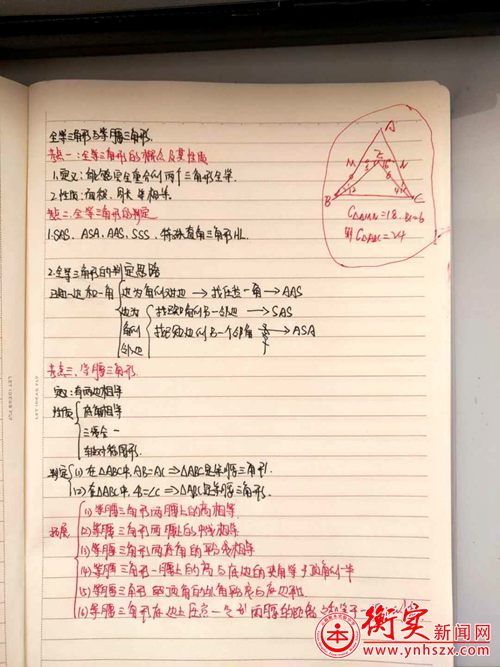 全等三角形与等腰三角形.
考点一:全等三角形的概念及其性质
1.定义:能够完全重合的两个三角形全等.
2.性质:面积、周长等相等.
考点二.全等三角形的判定
1.SAS、ASA、AAS、SSS、特殊直角三角形HL.
2.全等三角形的判定思路
已知一边和一角
边为角的对边 → 找任意一角 → AAS
边为角的邻边
找已知角的另一邻边 → SAS
找已知边的另一个邻角 → ASA
考点三、等腰三角形.
定义:有两边相等
性质
底角相等
三线合一
轴对称图形.
判定
(1)在△ABC中,AB=AC⇒△ABC是等腰三角形.
(2)在△ABC中,∠B=∠C⇒△ABC是等腰三角形.
拓展
(1)等腰三角形两腰上的高相等
(2)等腰三角形两腰上的中线相等
(3)等腰三角形两底角的平分线相等
(4)等腰三角形一腰上的高与底边的夹角等于顶角的一半
(5)等腰三角形的顶角的外角平分线与底边平行
(6)等腰三角形底边上任意一点到两腰的距离之和等于一
A
M
N
B
C
C△AMN=18.
则C△ABC=24
衡实新闻网
www.ynhszx.com